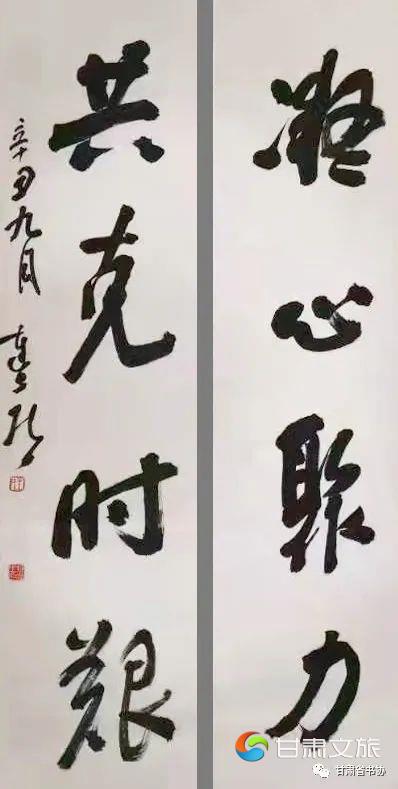 凝心聚力
共克时艰
辛丑九月
甘肃文旅
甘肃省书协